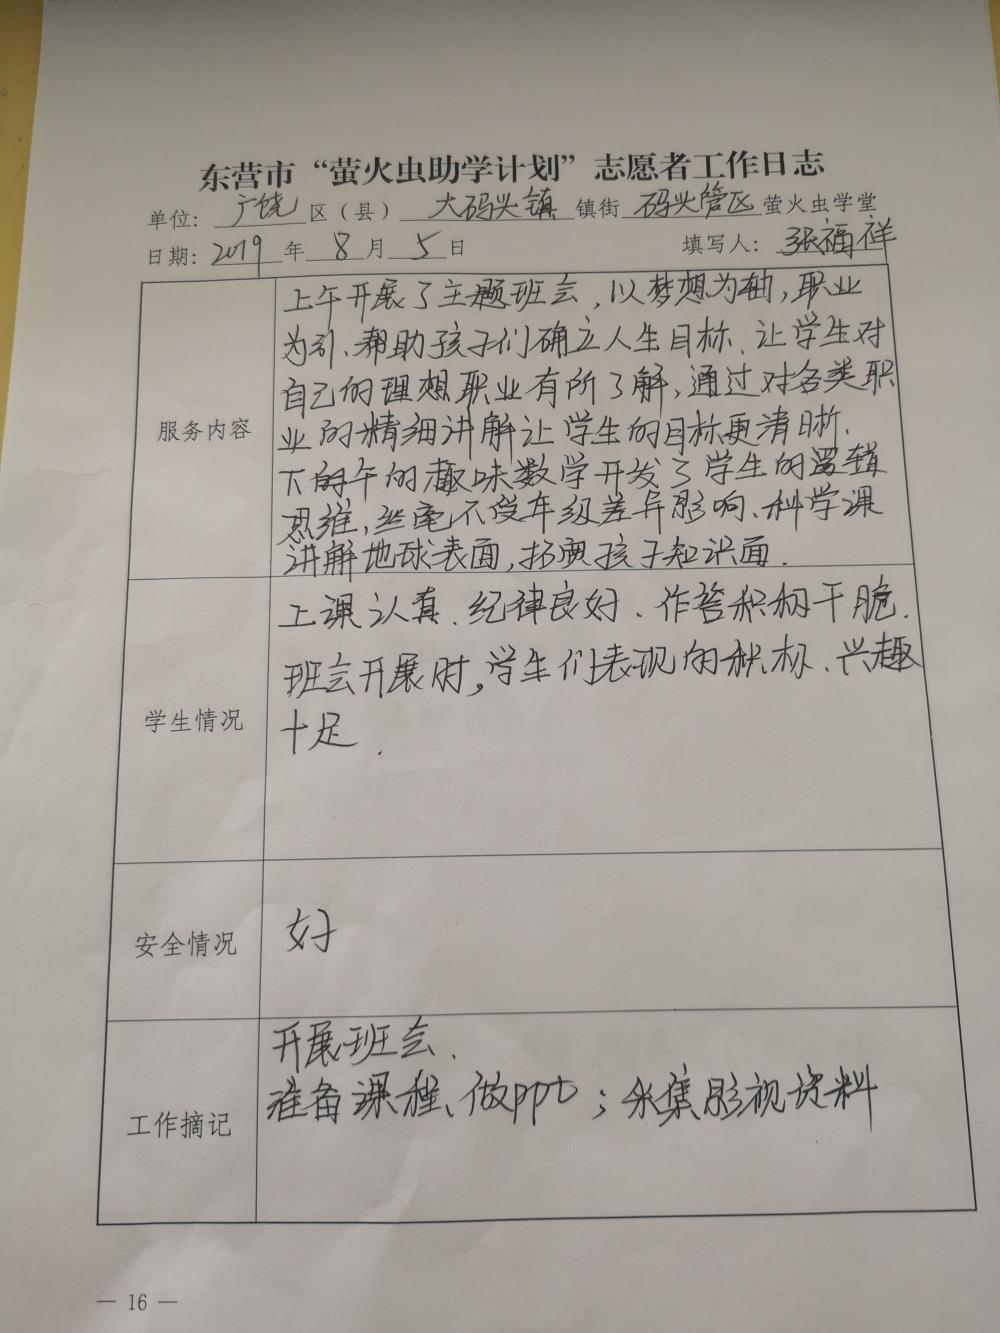 东营市“萤火虫助学计划”志愿者工作日志
单位：广饶区（县）大码头镇镇街码头管区萤火虫学堂
日期：2019年8月5日 填写人：张福祥
服务内容
上午开展了主题班会，以梦想为轴，职业
为引、帮助孩子们确立人生目标、让学生对
自己的理想职业有所了解，通过对各类职
业的精细讲解让学生的目标更清晰.
下午的趣味数学开发了学生的逻辑
思维，丝毫不受年级差异影响、科学课
讲解地球表面，拓展孩子知识面.
学生情况
上课认真、纪律良好、作答积极干脆.
班会开展时，学生们表现的积极、兴趣
十足.
安全情况
好
工作摘记
开展班会.
准备课程、做ppt；采集影视资料
— 16 —